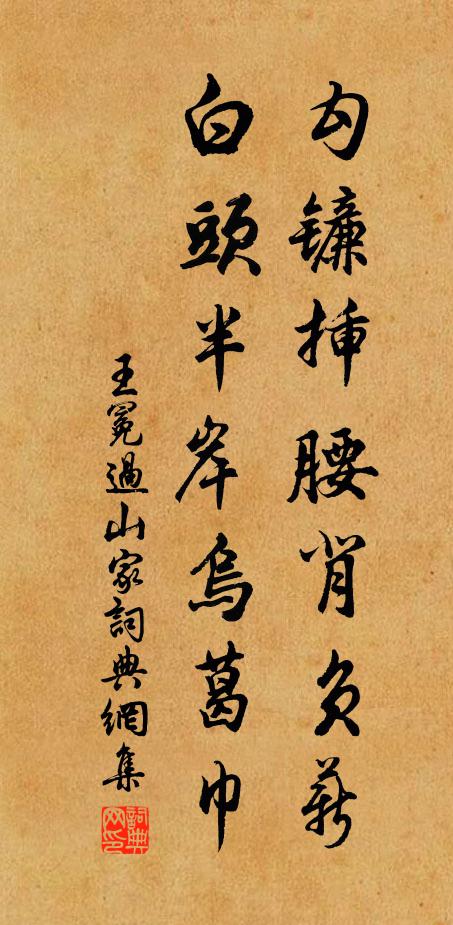 勾镰插腰背负薪
白頭半岸烏葛巾
王冕過山家詞典網集
詞典网印